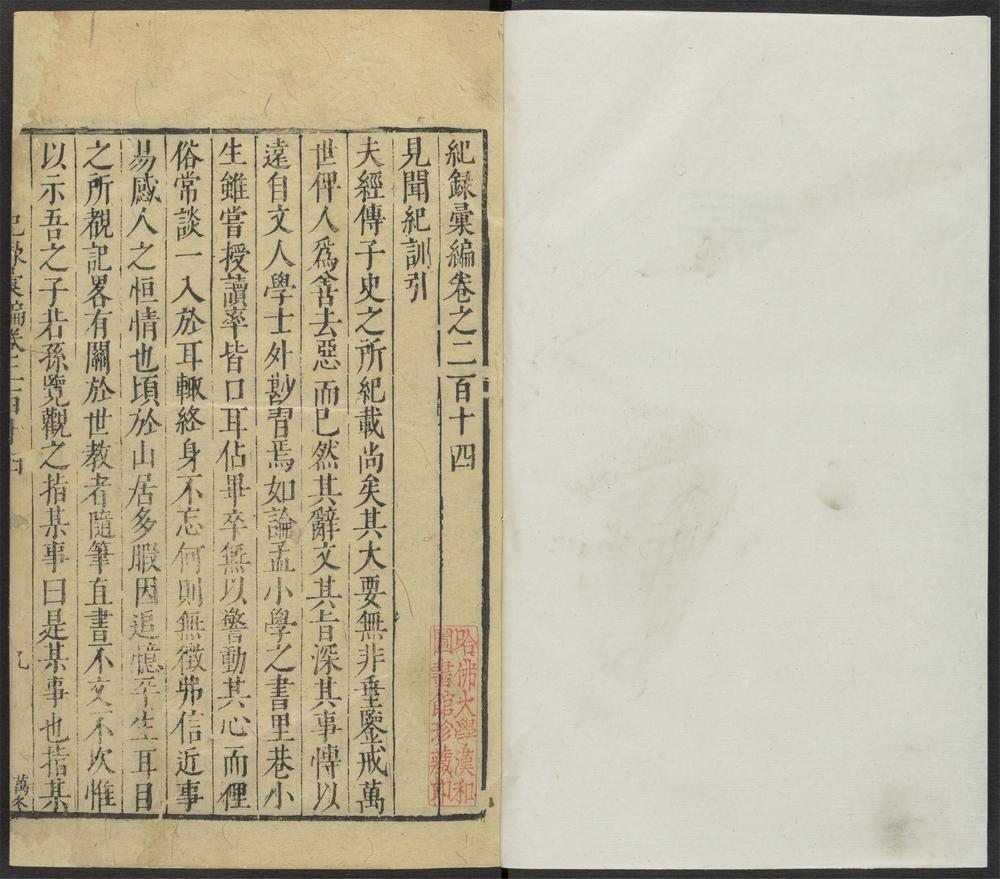 紀録彙編卷之二百十四
見聞紀訓引
夫經傳子史之所紀載尚矣其大要無非垂鑒戒萬
世俾人爲善去惡而已然其辭文其旨深其事博以
遠自文人學士外尠習焉如論孟小學之書里巷小
生雖嘗授讀率皆口耳佔畢卒無以警動其心而俚
俗常談一入於耳輙終身不忘何則無徵弗信近事
易感人之恒情也頃於山居多暇因追憶平生耳目
之所覩記畧有關於世教者隨筆直書不文不次惟
以示吾之子若孫覽觀之指某事曰是某事也指某
萬冬
哈佛大學漢和
圖書館珍藏印